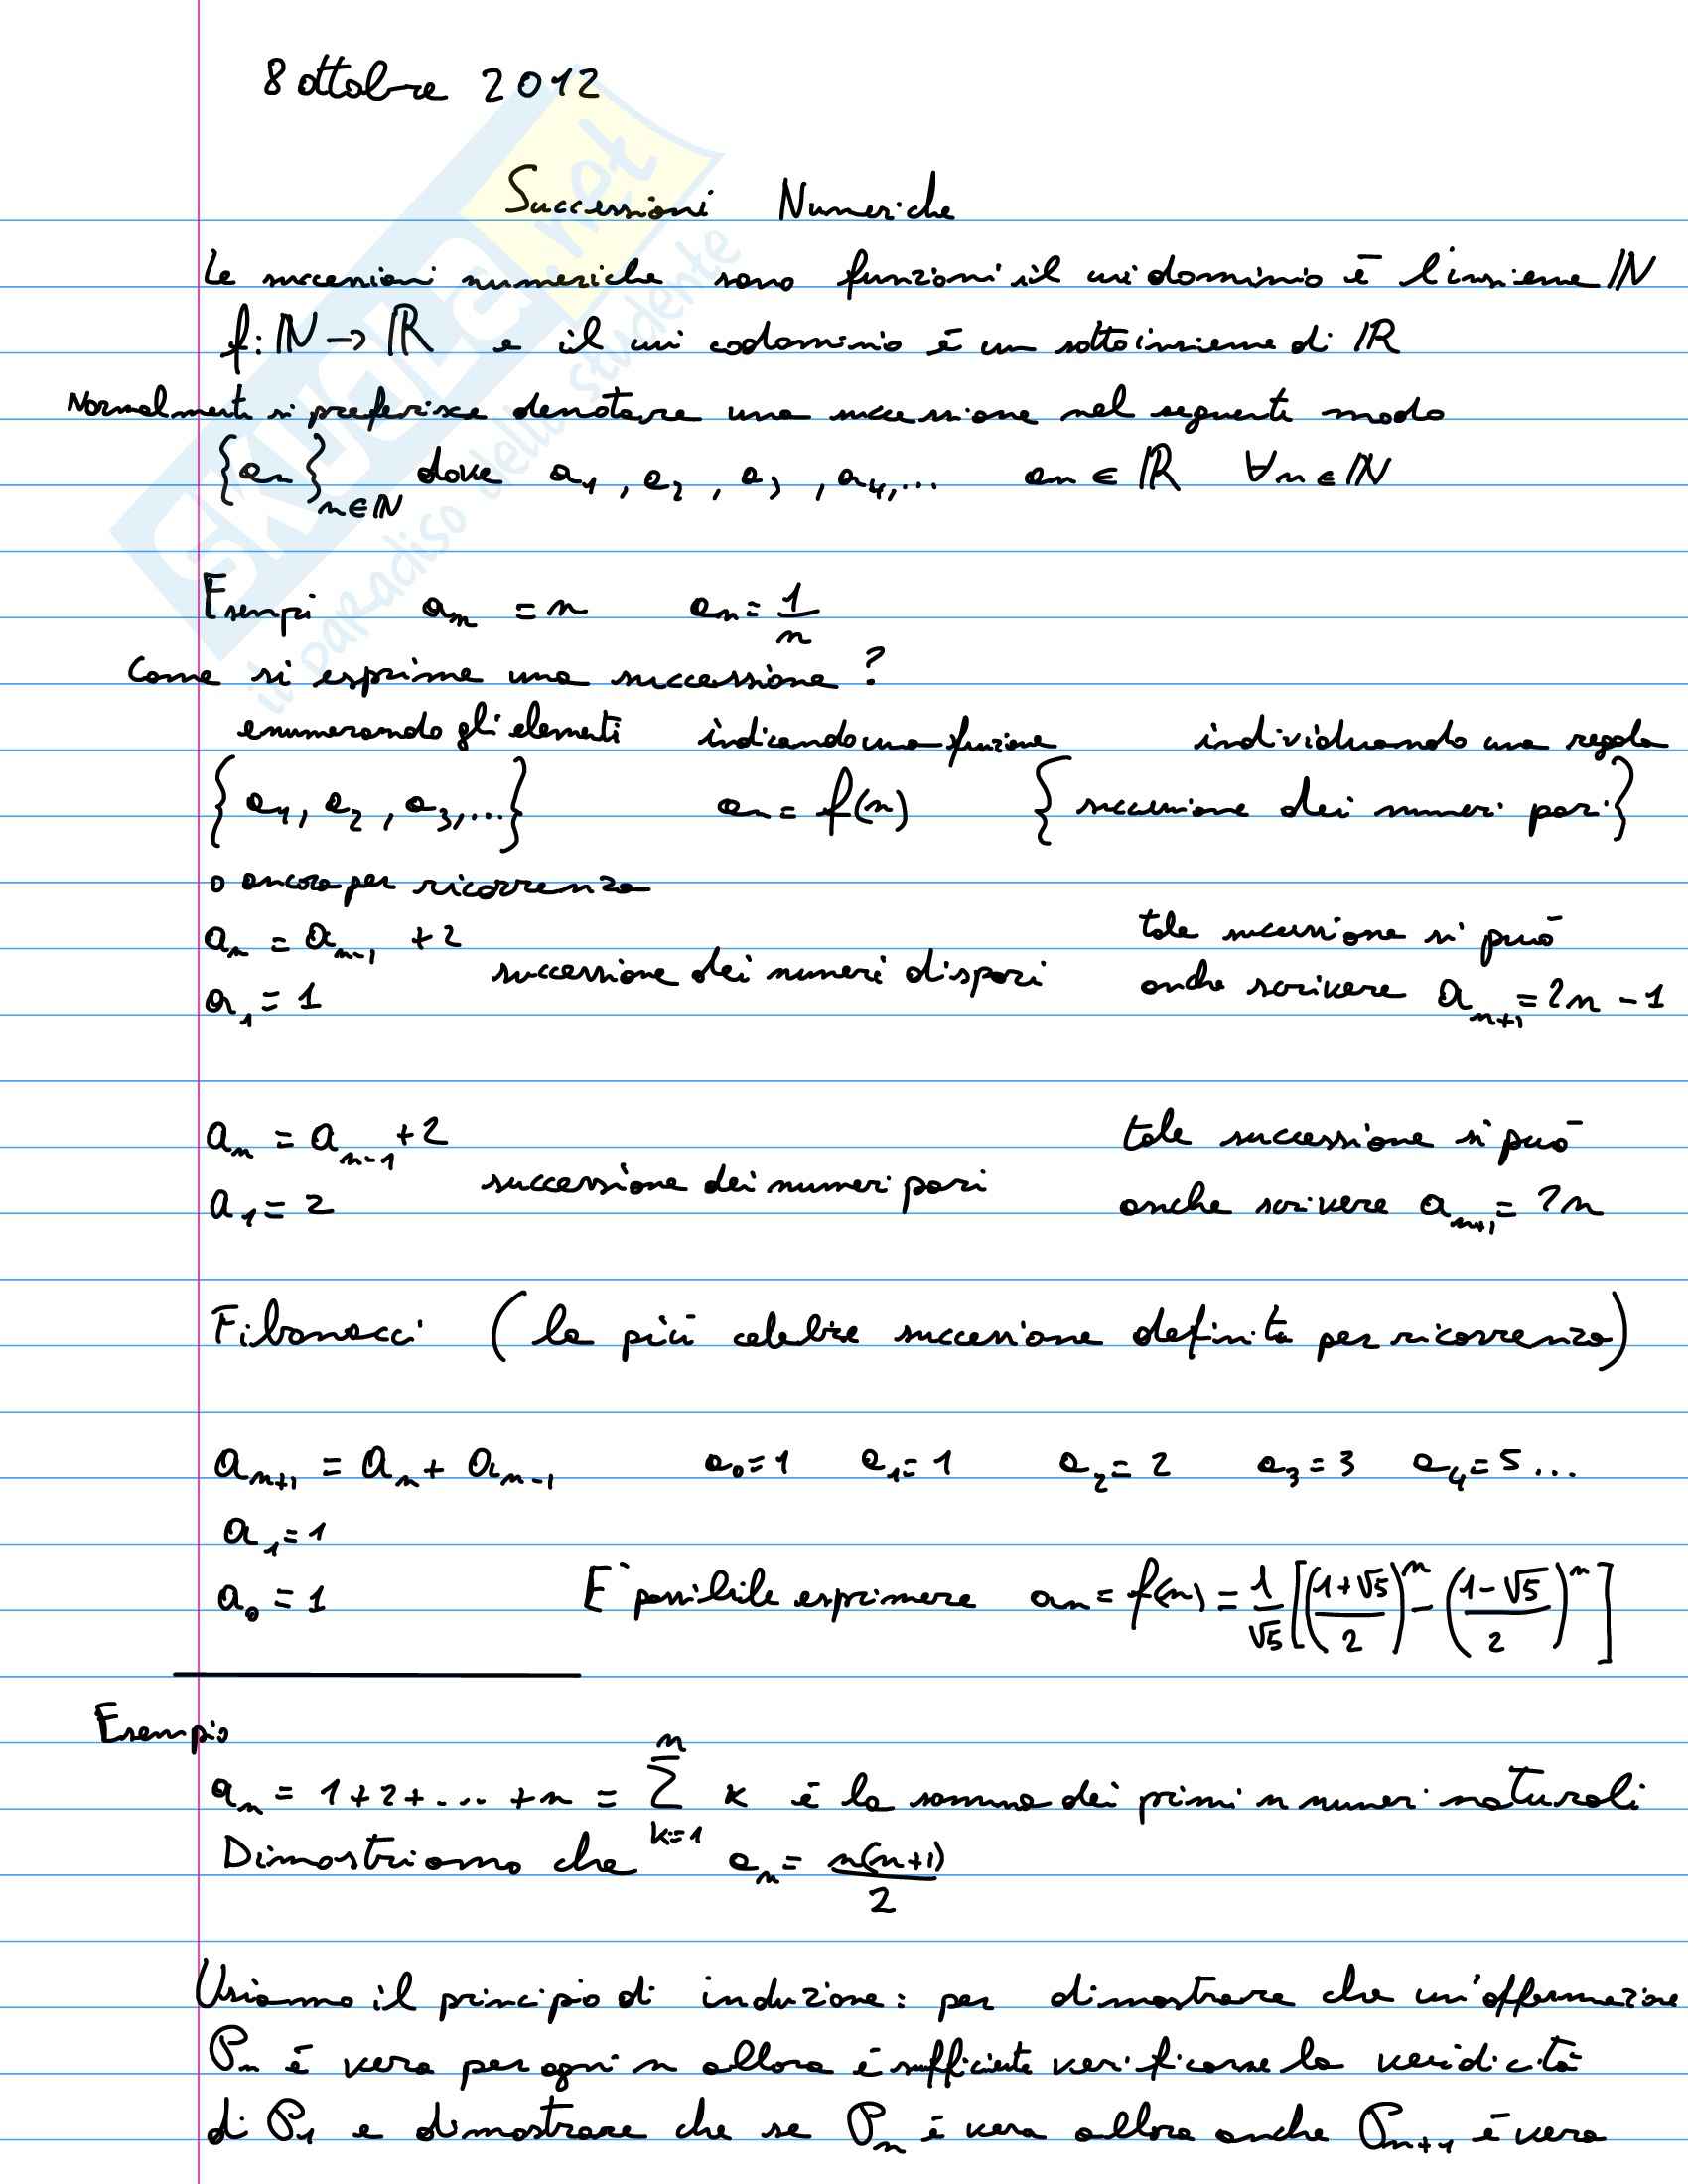 8 ottobre 2012
Successioni Numeriche
Le successioni numeriche sono funzioni il cui dominio è l'insieme ℕ
f: ℕ → ℝ e il cui codominio è un sottoinsieme di ℝ
Normalmente si preferisce denotare una successione nel seguente modo
{an}n∈ℕ dove a1, a2, a3, a4,... an ∈ ℝ ∀n∈ℕ
Esempi an = n an = 1/n
Come si esprime una successione?
enumerando gli elementi indicando una funzione individuando una regola
{a1, a2, a3,...} an = f(n) {successione dei numeri pari}
o ancora per ricorrenza
an = an-1 + 2 tale successione si può
a1 = 1 successione dei numeri dispari anche scrivere an+1 = 2n - 1
an = an-1 + 2 tale successione si può
a1 = 2 successione dei numeri pari anche scrivere an+1 = 2n
Fibonacci (la più celebre successione definita per ricorrenza)
an+1 = an + an-1 a0=1 a1=1 a2=2 a3=3 a4=5...
a1=1
a0=1 E' possibile esprimere an = f(n) = 1/√5 [((1+√5)/2)^n - ((1-√5)/2)^n]
Esempio
an = 1+2+...+n = ∑k=1^n k è la somma dei primi n numeri naturali
Dimostriamo che an = n(n+1)/2
Usiamo il principio di induzione: per dimostrare che un'affermazione
Pn è vera per ogni n allora è sufficiente verificarne la veridicità
di P1 e dimostrare che se Pn è vera allora anche Pn+1 è vera
skuola.net
il paradiso dello studente